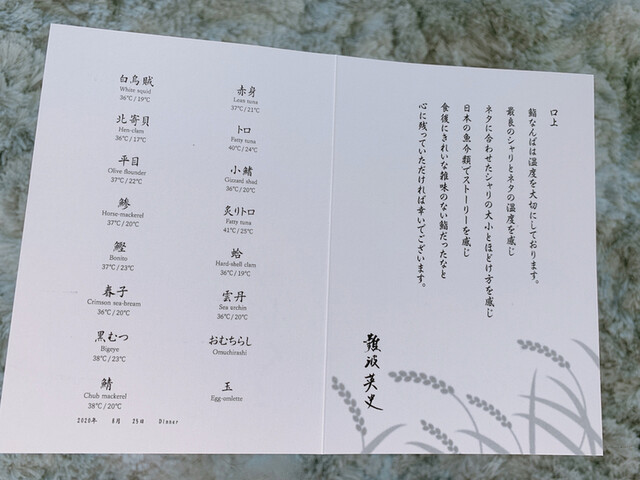 白烏賊
White squid
36℃/19℃
北寄貝
Hen-clam
36℃/17℃
平目
Olive flounder
37℃/22℃
鯵
Horse-mackerel
37℃/20℃
鰹
Bonito
37℃/23℃
春子
Crimson sea-bream
37℃/20℃
黒むつ
Bigeye
38℃/23℃
鯖
Chub mackerel
38℃/20℃
赤身
Lean tuna
37℃/21℃
トロ
Fatty tuna
40℃/24℃
小鰭
Gizzard shad
36℃/20℃
炙りトロ
Fatty tuna
41℃/25℃
蛤
Hard-shell clam
36℃/19℃
雲丹
Sea urchin
36℃/20℃
おむちらし
Omuchirashi
玉
Egg-omlette
2020年 8月 25日 Dinner
口上
鮨なんばは温度を大切にしております。
最良のシャリとネタの温度を感じ
ネタに合わせたシャリの大小とほどけ方を感じ
日本の魚介類でストーリーを感じ
食後にきれいな雑味のない鮨だったなと
心に残っていただければ幸いでございます。
難波英史